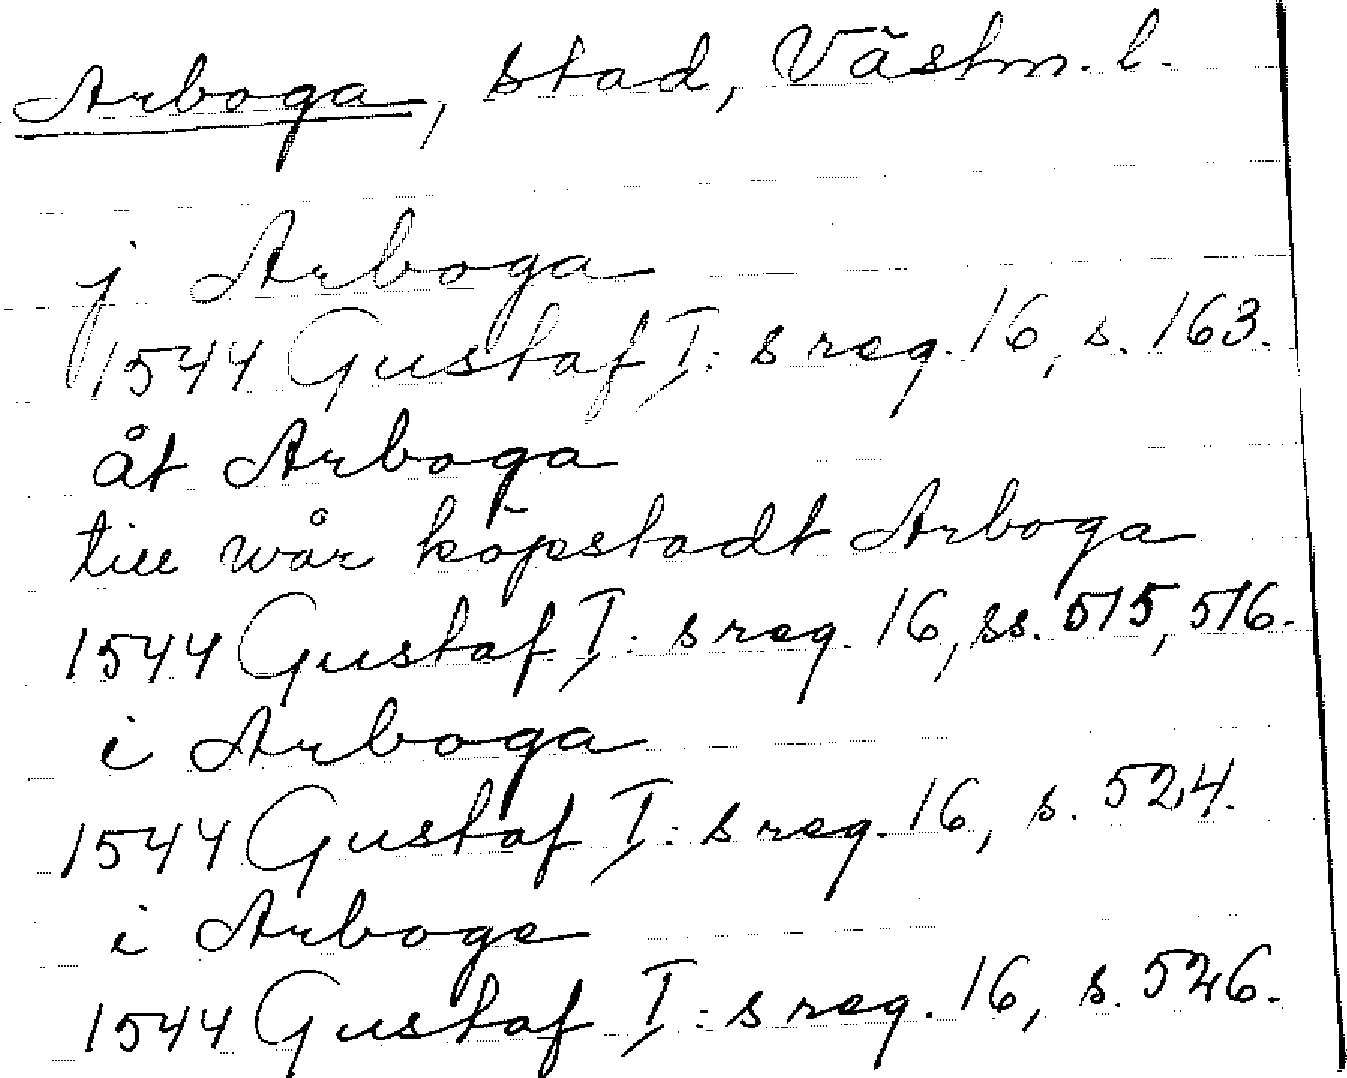 Arboga, stad, Västm. l.
j Arboga
1544 Gustaf I:s reg. 16, s. 163.
åt Arboga
till wår köpstadt Arboga
1544 Gustaf I:s reg. 16, ss. 515, 516.
i Arboga
1544 Gustaf I:s reg. 16, s. 524.
i Arboga
1544 Gustaf I:s reg. 16, s. 526.